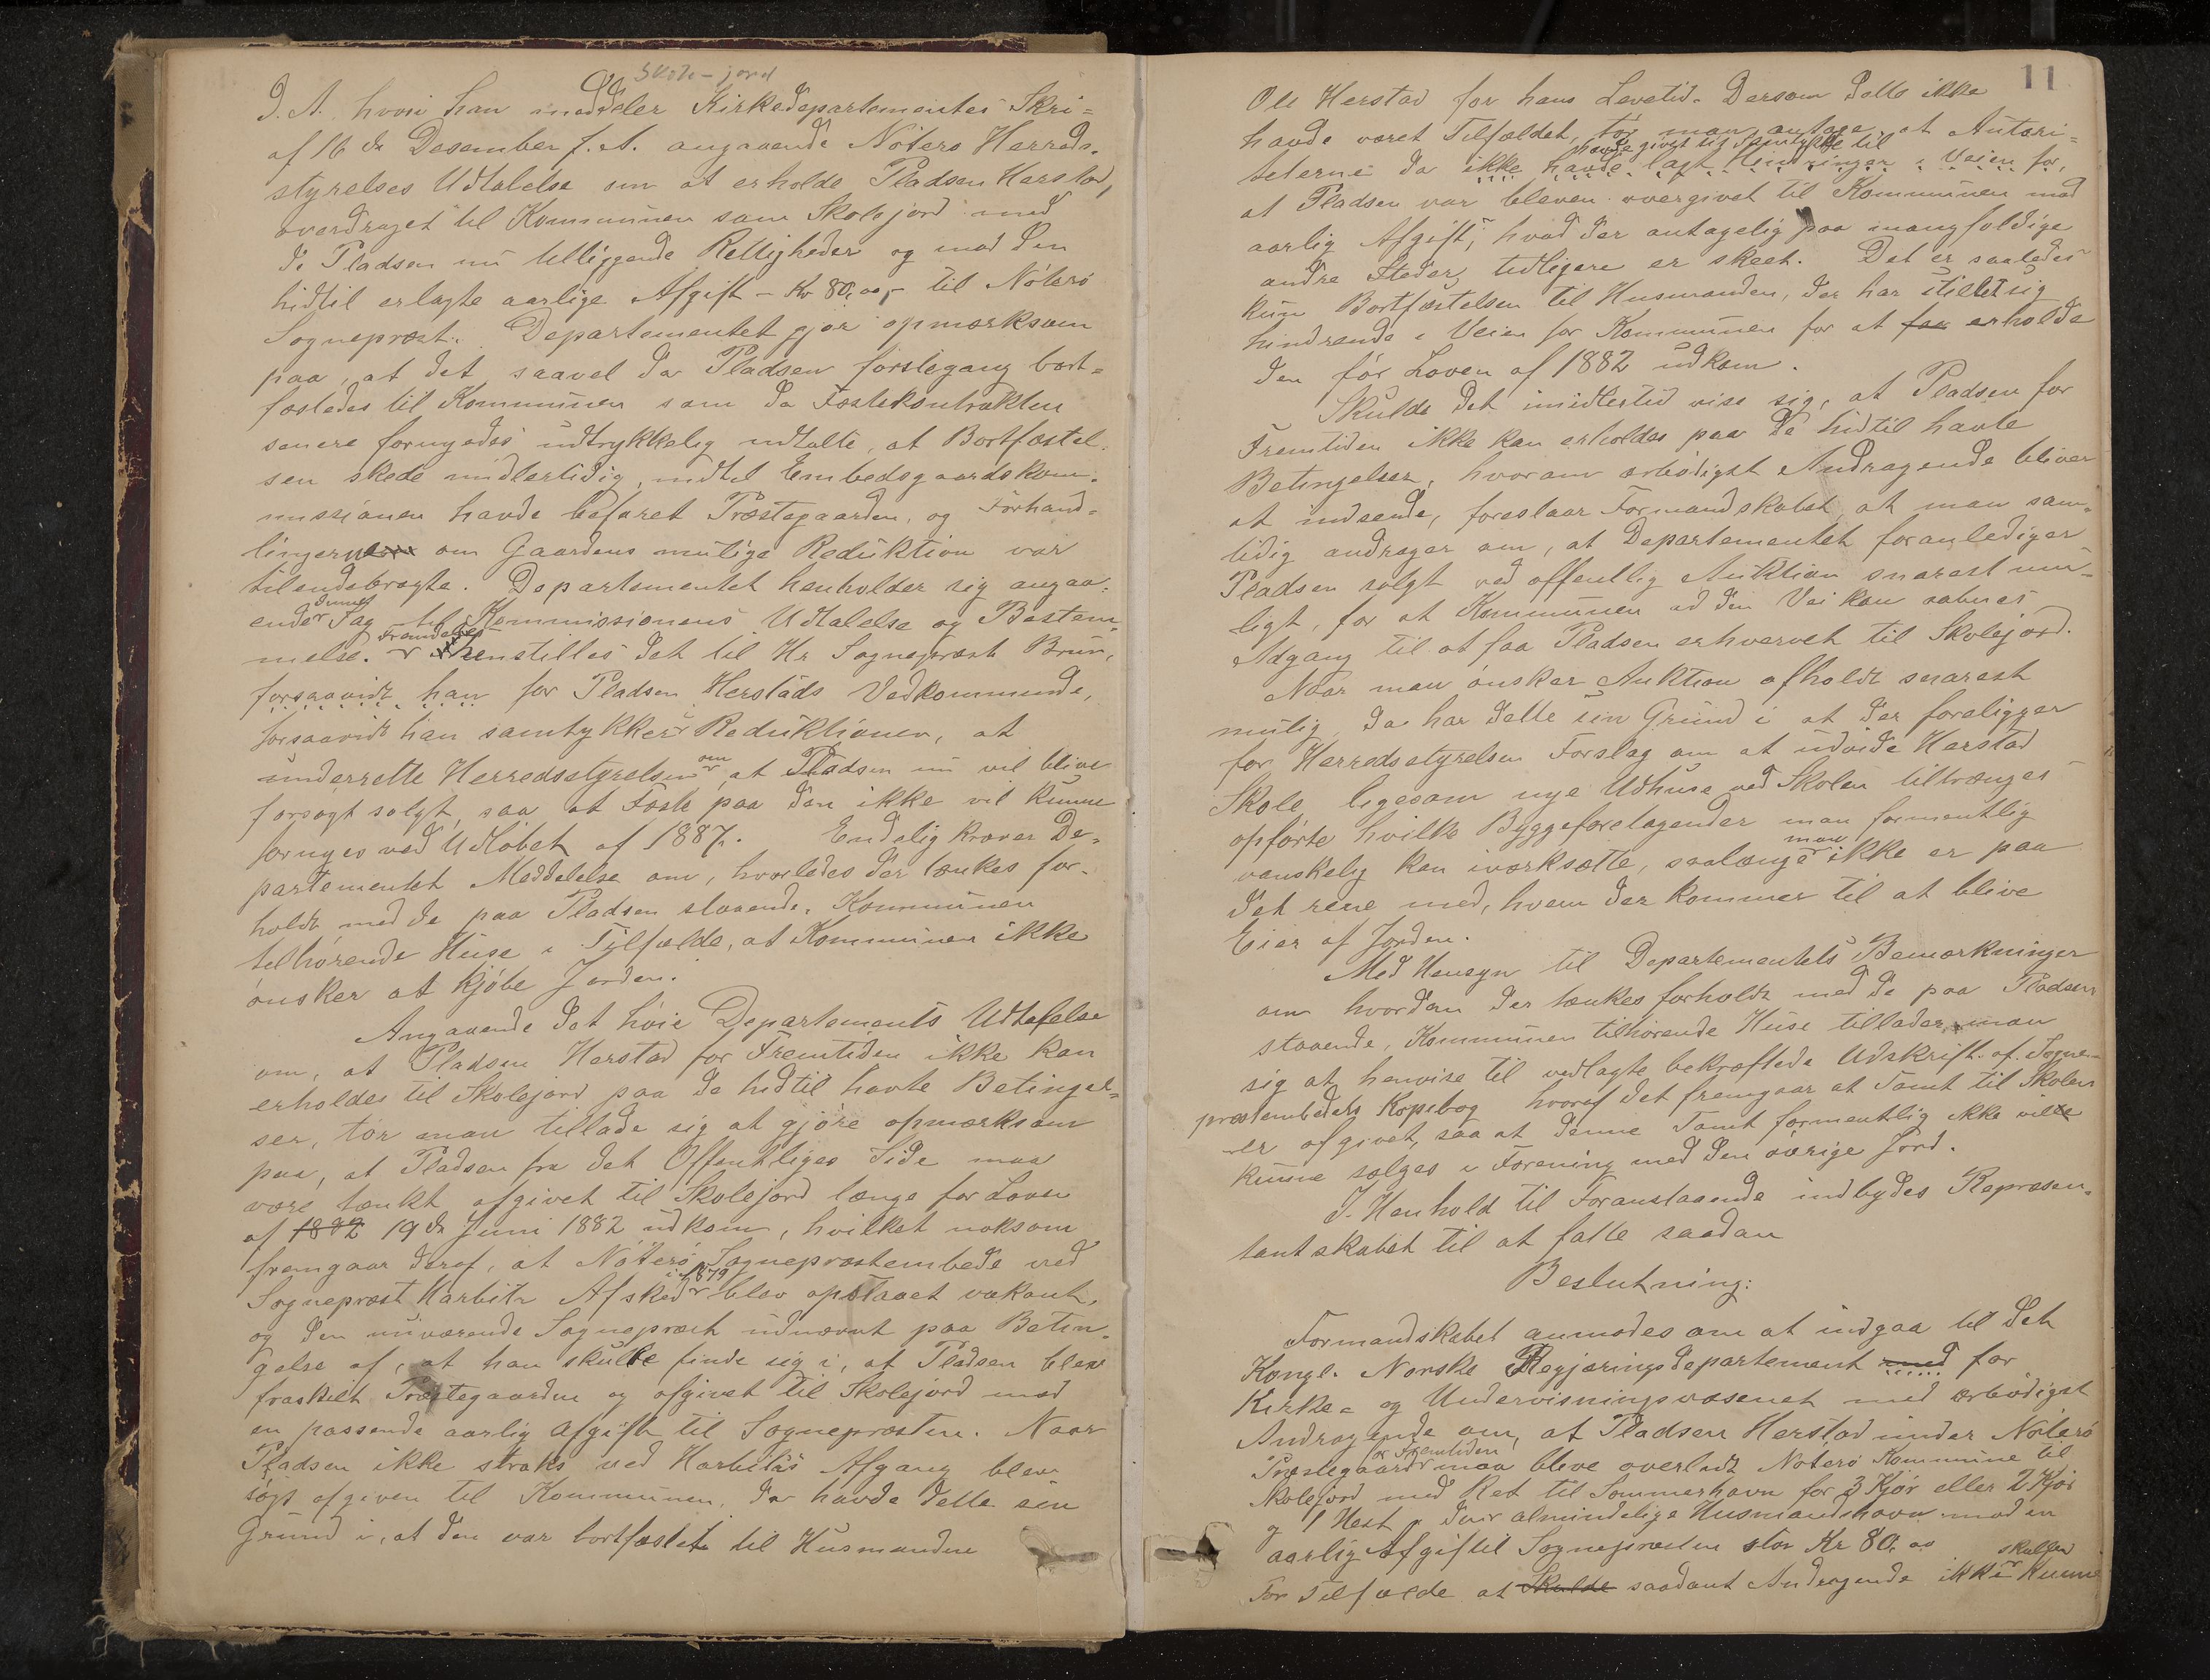 Skole-jord
d. A. hvori han meddeler Kirkedepartementes Skri=
af 16 de Desember f. A. angaaende Nøterø Herreds-
styrelses Udtalelse om at erholde Pladsen Herstad,
overdraget til Kommunen som Skolejord med
de Pladsen nu tilliggende Rettigheder og mod den
hidtil erlagte aarlige Afgift - Kr 80,00,- til Nøterø
Sogneprest. Departementet gjør opmærksom
paa, at det saavel da Pladsen førstegang bort=
fæstedes til Kommunen som da Fæstekontrakten
senere fornyedes udtrykkelig udtalte, at Bortfæstel-
sen skede midlertidig, indtil Embedsgaardskom-
missionen havde befaret Præstegaarden, og Forhand=
lingerne om Gaardens mulige Reduktion var
tilendebragte. Departementet henholder sig angaa-
ende denne Sag til Kommissionens Udtalelse og Bestem-
melse. Fremdeles henstilles det til Hr Sogneprest Brun,
forsaavidt han for Pladsen Herstads Vedkommende,
forsaavidt han samtykker Reduktionen, at
underrette Herredsstyrelsen om, at Pladsen nu vil blive
forsøgt solgt, saa at Fæste paa den ikke vil kunne
fornyes ved Udløbet af 1887. Endelig kræver De-
partementet Meddelelse om, hvorledes der tænkes for-
holdt med de paa Pladsen staaende, Kommunen
tilhørende Huse i Tilfælde, at Kommunen ikke
ønsker at kjøbe Jorden.
Angaaende det høie Departements Udtalelse
om, at Pladsen Herstad for Fremtiden ikke kan
erholdes til Skolejord paa de hidtil havte Betingel=
ser, tør man tillade sig at gjøre opmærksom
paa, at Pladsen fra det Offentliges Side maa
være tænkt afgivet til Skolejord længe før Loven
af 1882 19 de Juni 1882 udkom, hvilket noksom
fremgaar deraf, at Nøterø Sognepræstembede ved
Sogneprest Harbitz Afsked i 1879 blev opslaaet vakant,
og den nuværende Sogneprest udnævnt paa Betin-
gelse af, at han skulde finde sig i, at Pladsen blev
fraskilt Præstegaarden og afgivet til Skolejord mod
en passende aarlig Afgift til Sognepræsten. Naar
Pladsen ikke straks ved Harbitz's Afgang blev
søgt afgiven til Kommunen, da havde dette sin
Grund i, at den var bortfæstet til Husmanden
11
Ole Herstad for hans Levetid. Dersom dette ikke
havde været Tilfældet, tør man antage, at Autori=
teterne da ikke havde lagt Hindringer i Veien for,
havde givet sit Samtykke til
at Pladsen var bleven overgivet til Kommunen mod
aarlig Afgift, hvad der antagelig paa mangfoldige
andre Steder tidligere er skeet. Det er saaledes
kun Bortfæstelsen til Husmanden, der har stillet sig
hindrende i Veien for Kommunen for at faa erholde
den før Loven af 1882 udkom.
Skulde det imidlertid vise sig, at Pladsen for
Fremtiden ikke kan erholdes paa de hidtil havte
Betingelser, hvorom ærbødigst Andragende bliver
at indsende, foreslaar Formandskabet, at man sam-
tidig andrager om, at Departementet foranlediger
Pladsen solgt ved offentlig Auktion snarest mu-
ligt, for at Kommunen ad den Vei kan aabnes
Adgang til at faa Pladsen erhvervet til Skolejord.
Naar man ønsker Auktion afholdt snarest
mulig, da har dette sin Grund i at der foreligger
for Herredsstyrelsen Forslag om at udvide Herstad
Skole, ligesom nye Udhuse ved Skolen tiltrænges
opførte hvilke Byggeforetagender man formentlig
vanskelig kan iværksætte, saalænge man ikke er paa
det rene med, hvem der kommer til at blive
Eier af Jorden.
Med Hensyn til Departementets Bemærkninger
om hvordan der tænkes forholdt med de paa Pladsen
staaende, Kommunen tilhørende Huse tillader man
sig at henvise til vedlagte bekræftede Udskrift af Sogne-
præstembedets Kopibog hvoraf det fremgaar at Tomt til Skolen
er afgivet, saa at denne Tomt formentlig ikke vil
kunne sælges i Forening med den øvrige Jord.
I Henhold til Foranstaaende indbydes Repræsen-
tantskabet til at fatte saadan
Beslutning:
Formandskabet anmodes om at indgaa til det
Kongl. Norske Regjeringsdepartement med for
Kirke= og Undervisningsvæsenet med ærbødigst
Andragende om, at Pladsen Herstad under Nøterø
Præstegaard for Fremtiden maa blive overladt Nøterø Kommune til
Skolejord med Ret til Sommerhavn for 3 Kjør eller 2 Kjør
og 1 Hest i den almindelige Husmandshavn mod en
aarlig Afgift til Sognepræsten stor Kr 80,00
For Tilfælde at Skulde saadant Andragende ikke skulde kunne